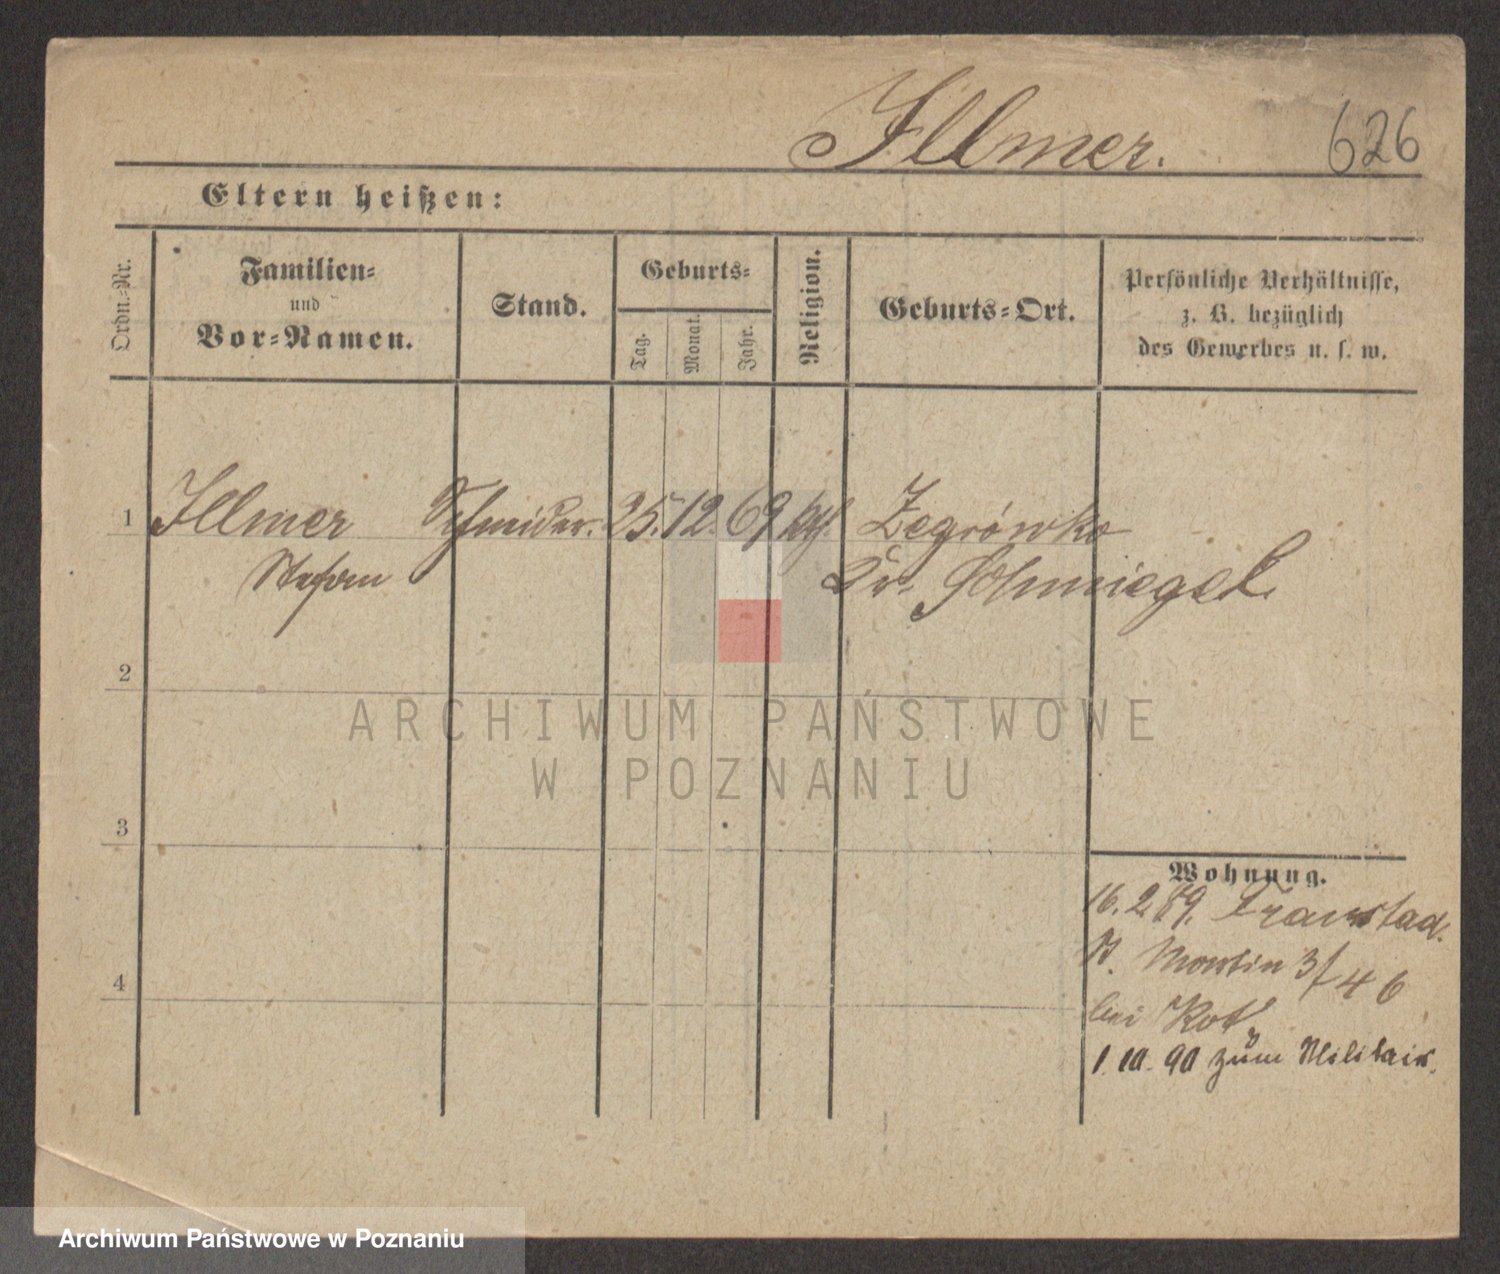 Illmer.
626
Eltern heißen:
Ordn.-Nr.
Familien-
und
Vor-Namen.
Stand.
Geburts-
Tag.
Monat.
Jahr.
Religion.
Geburts-Ort.
Persönliche Verhältnisse,
z. B. bezüglich
des Gewerbes u. s. w.
1 Illmer Schneider. 25. 12. 69 kth. Zegrówko
Stefan Kr. Schmiegel.
2
3
4
Wohnung.
16. 2. 89. Fraustad.
St. Martin 3/ 46
bei Kot
1. 10. 90 zum Militair.
ARCHIWUM PAŃSTWOWE
W POZNANIU
Archiwum Państwowe w Poznaniu